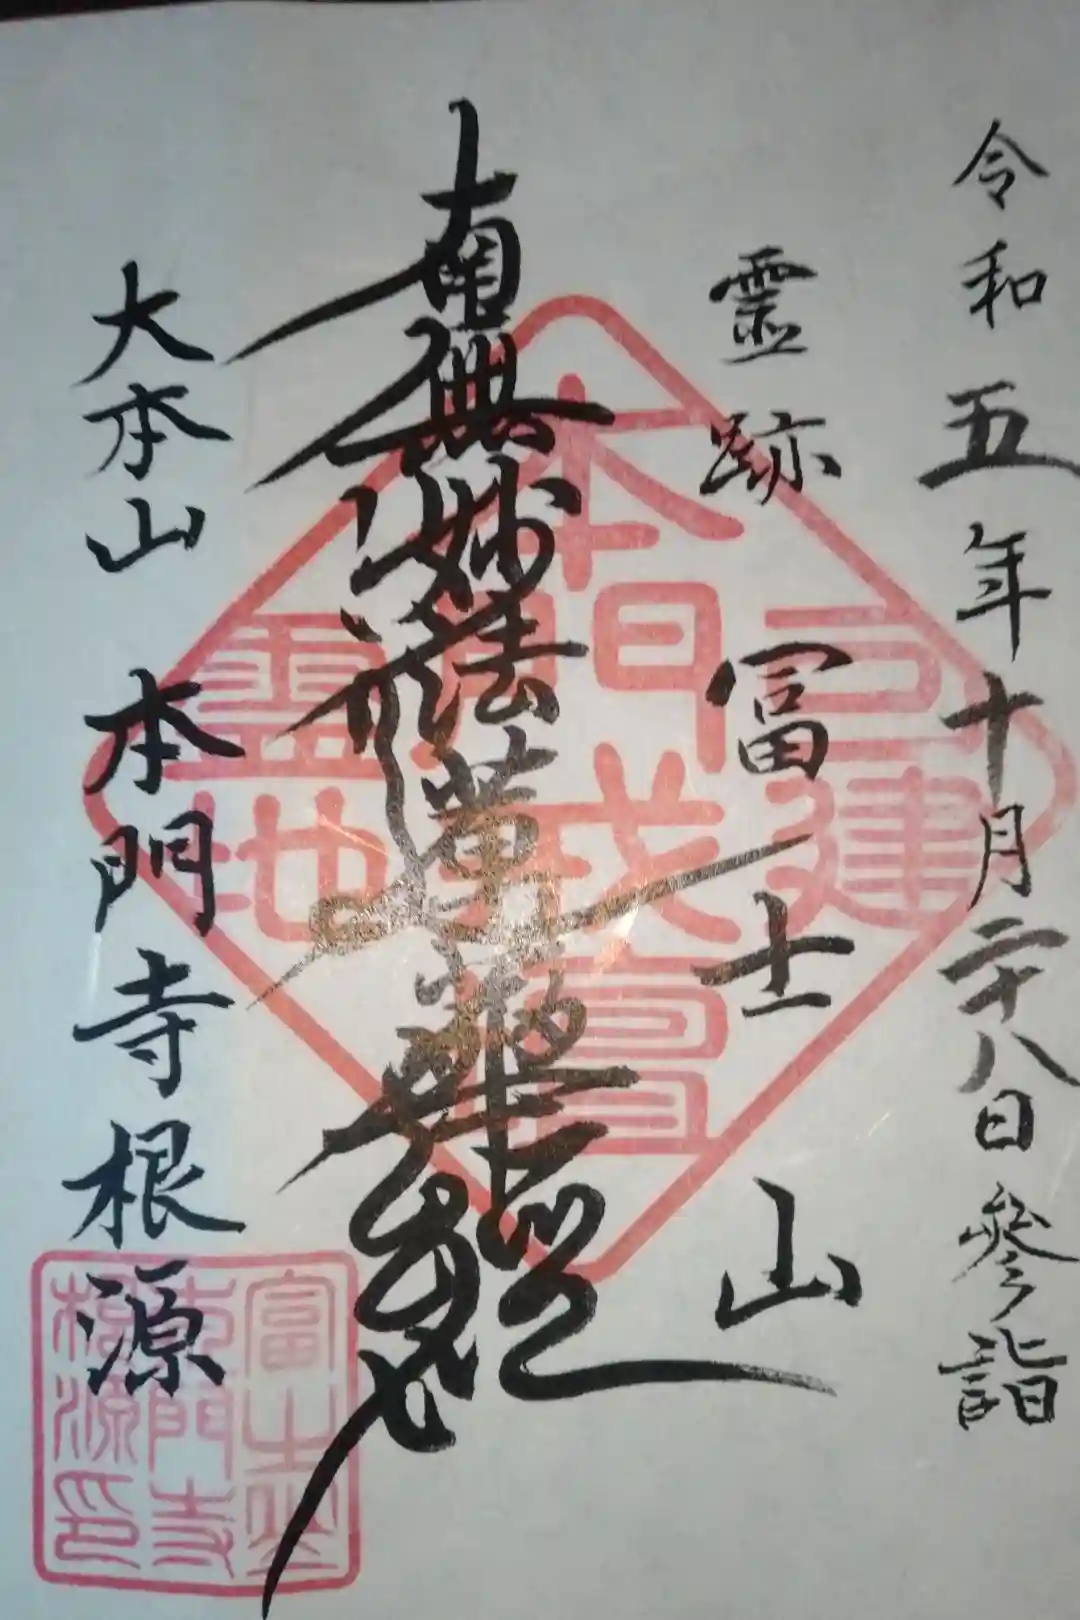 令和五年十月二十八日参詣
靈跡 富士山
南無妙法蓮華経
大本山 本門寺根源
本門戒壇
建
靈地
富士山
本門寺
根源印